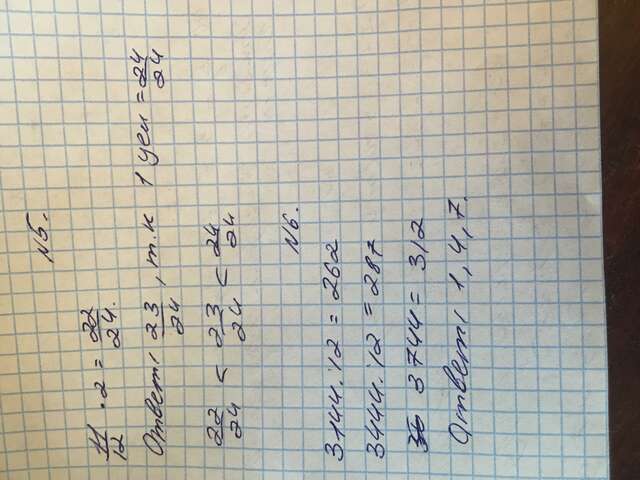 №5.
11/12 · 2 = 22/24.
Ответ: 23/24, т.к 1 цел = 24/24
22/24 < 23/24 < 24/24
№6.
3144:12 = 262
3444:12 = 287
3744 = 312
Ответ: 1, 4, 7.